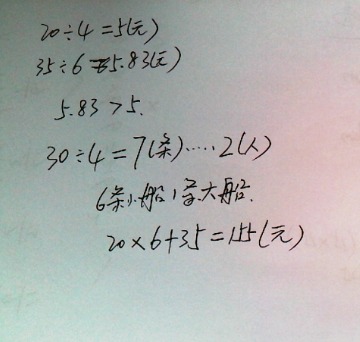 20÷4=5(元)
35÷6≈5.83(元)
5.83>5.
30÷4=7(条)……2(人)
6条小船1条大船.
20×6+35=155(元)